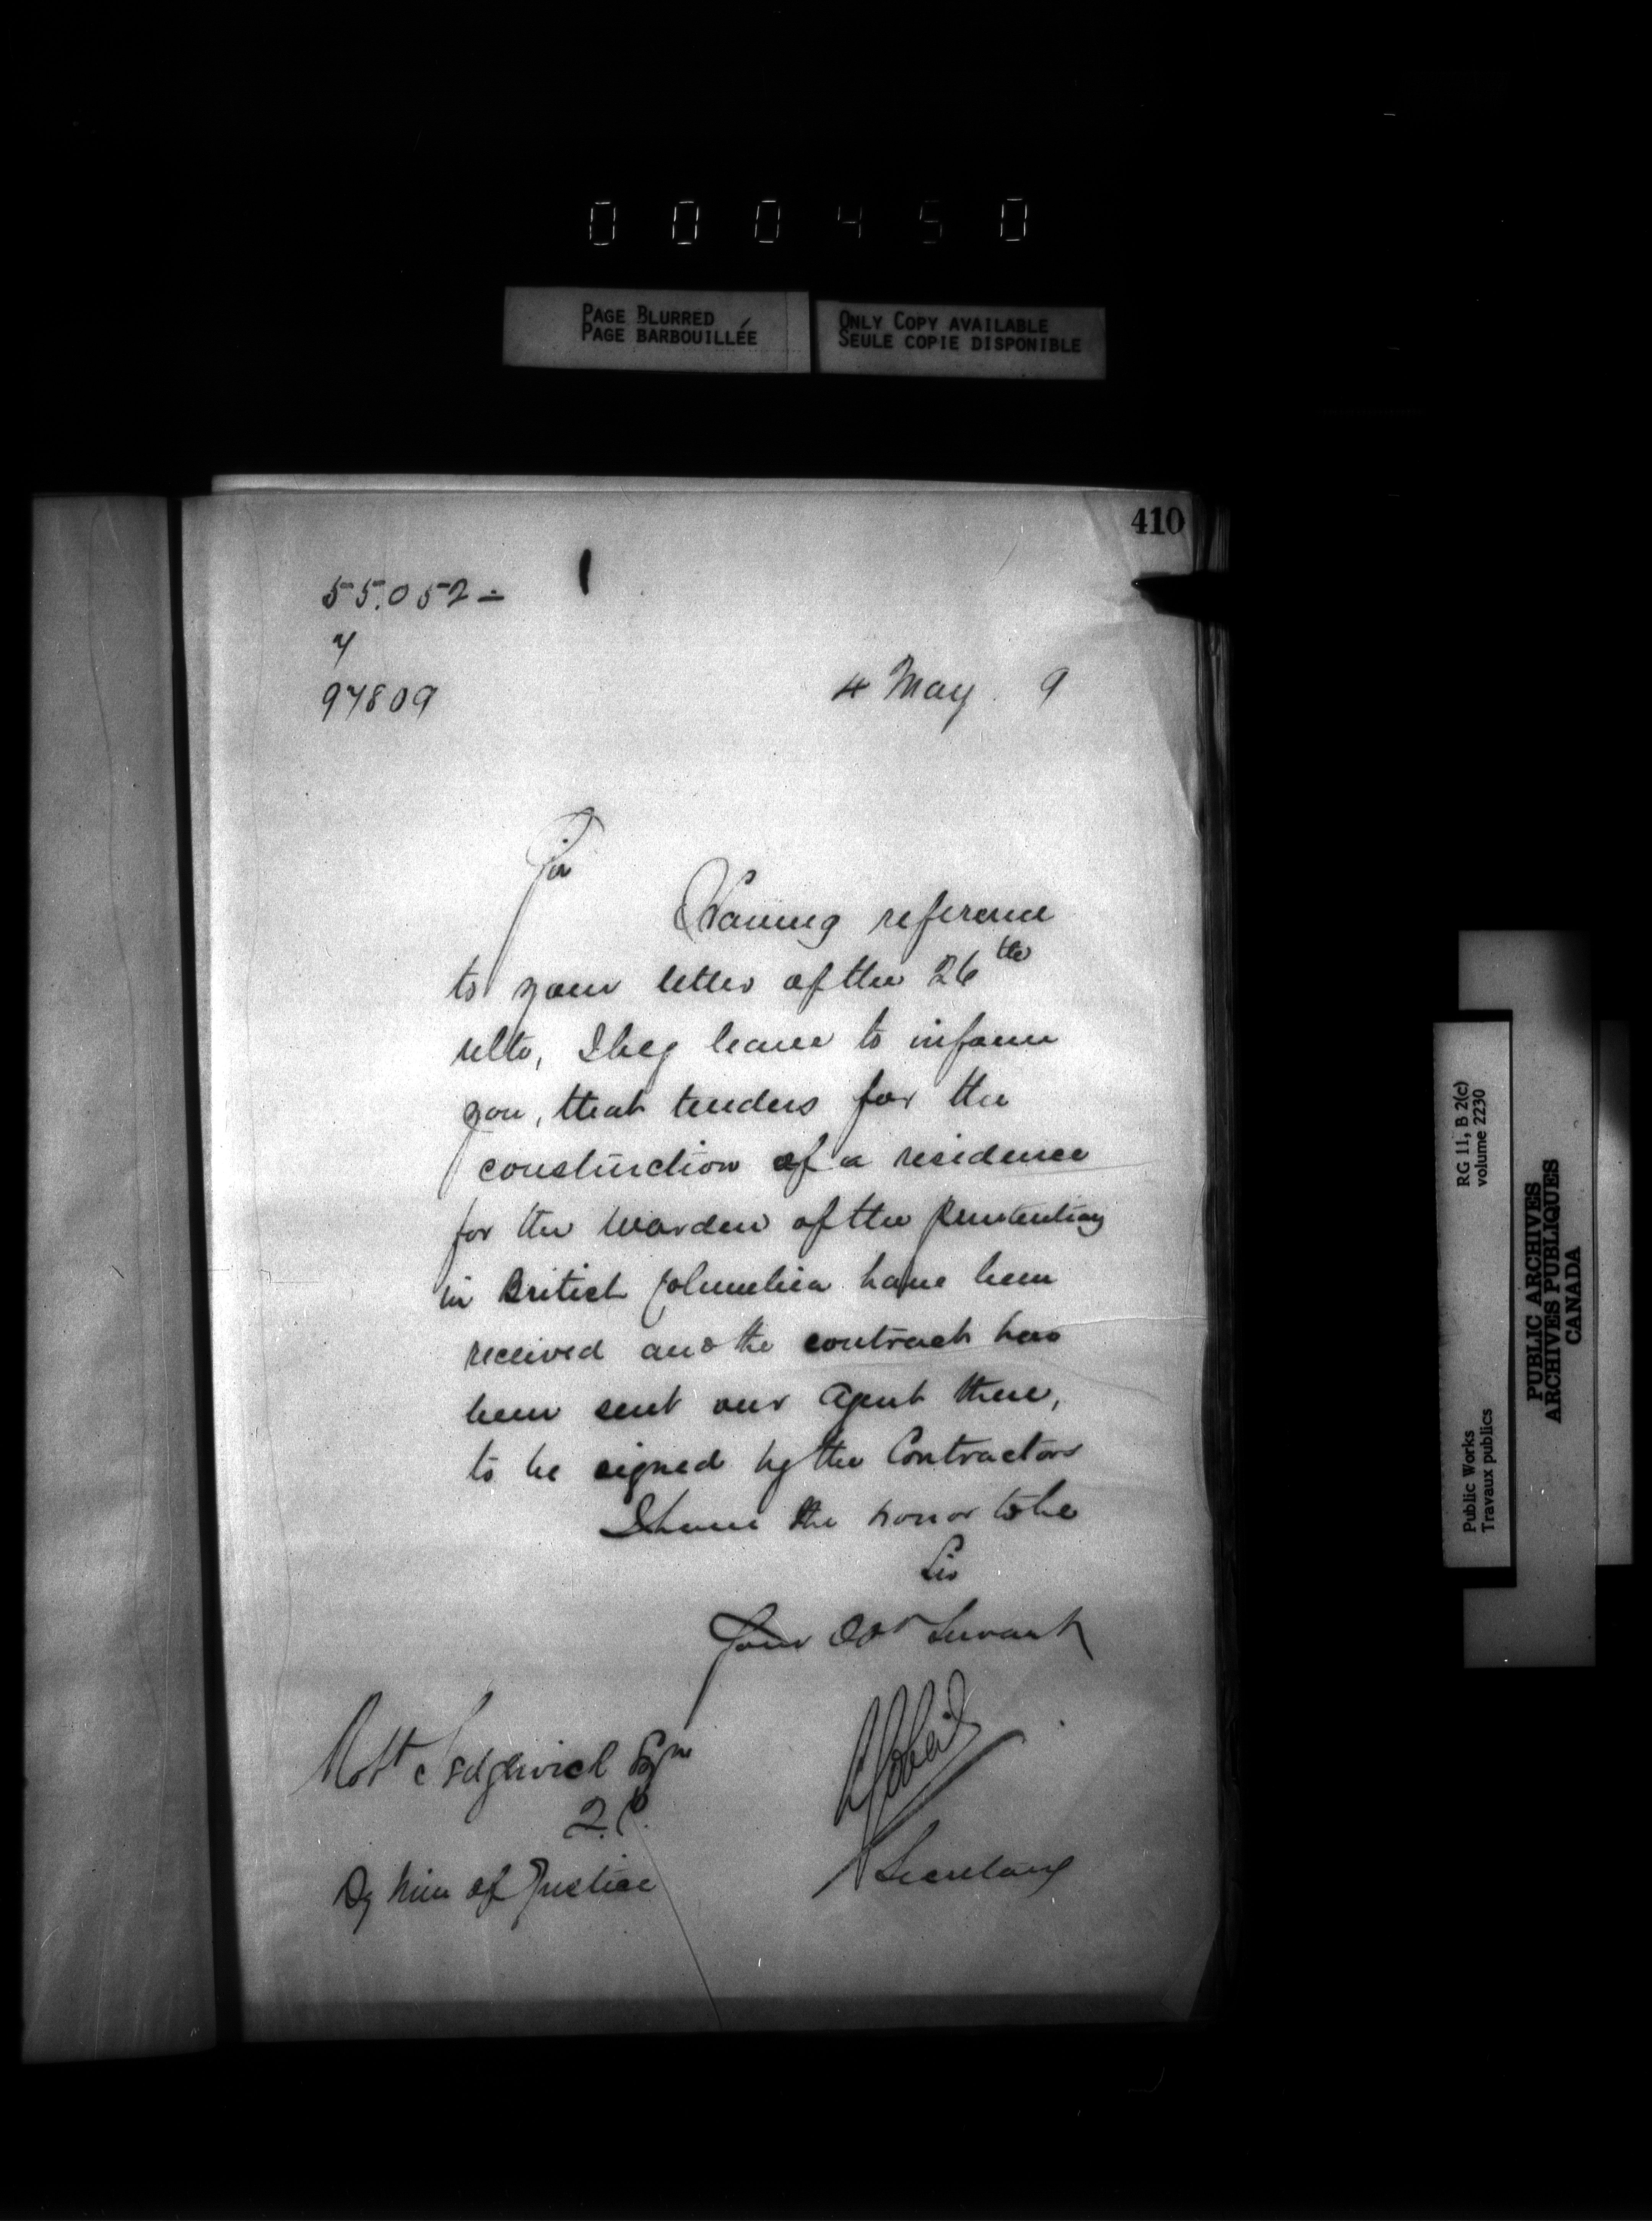 0 0 0 4 5 0
PAGE BLURRED
PAGE BARBOUILLÉE
ONLY COPY AVAILABLE
SEULE COPIE DISPONIBLE
410
55.052 -
7
97809
4 May 9
Sir
Having reference
to your letter of the 26th
ulto, I beg leave to inform
you, that tenders for the
construction of a residence
for the Warden of the Penitentiary
in British Columbia have been
received and the contract has
been sent our Agent there,
to be signed by the Contractors
I have the honor to be
Sir
Your Obt Servant
Robt Sedgewick Esqre
Q.C.
Dy Min of Justice
Secretary
RG 11, B 2(c)
volume 2230
Public Works
Travaux publics
PUBLIC ARCHIVES
ARCHIVES PUBLIQUES
CANADA